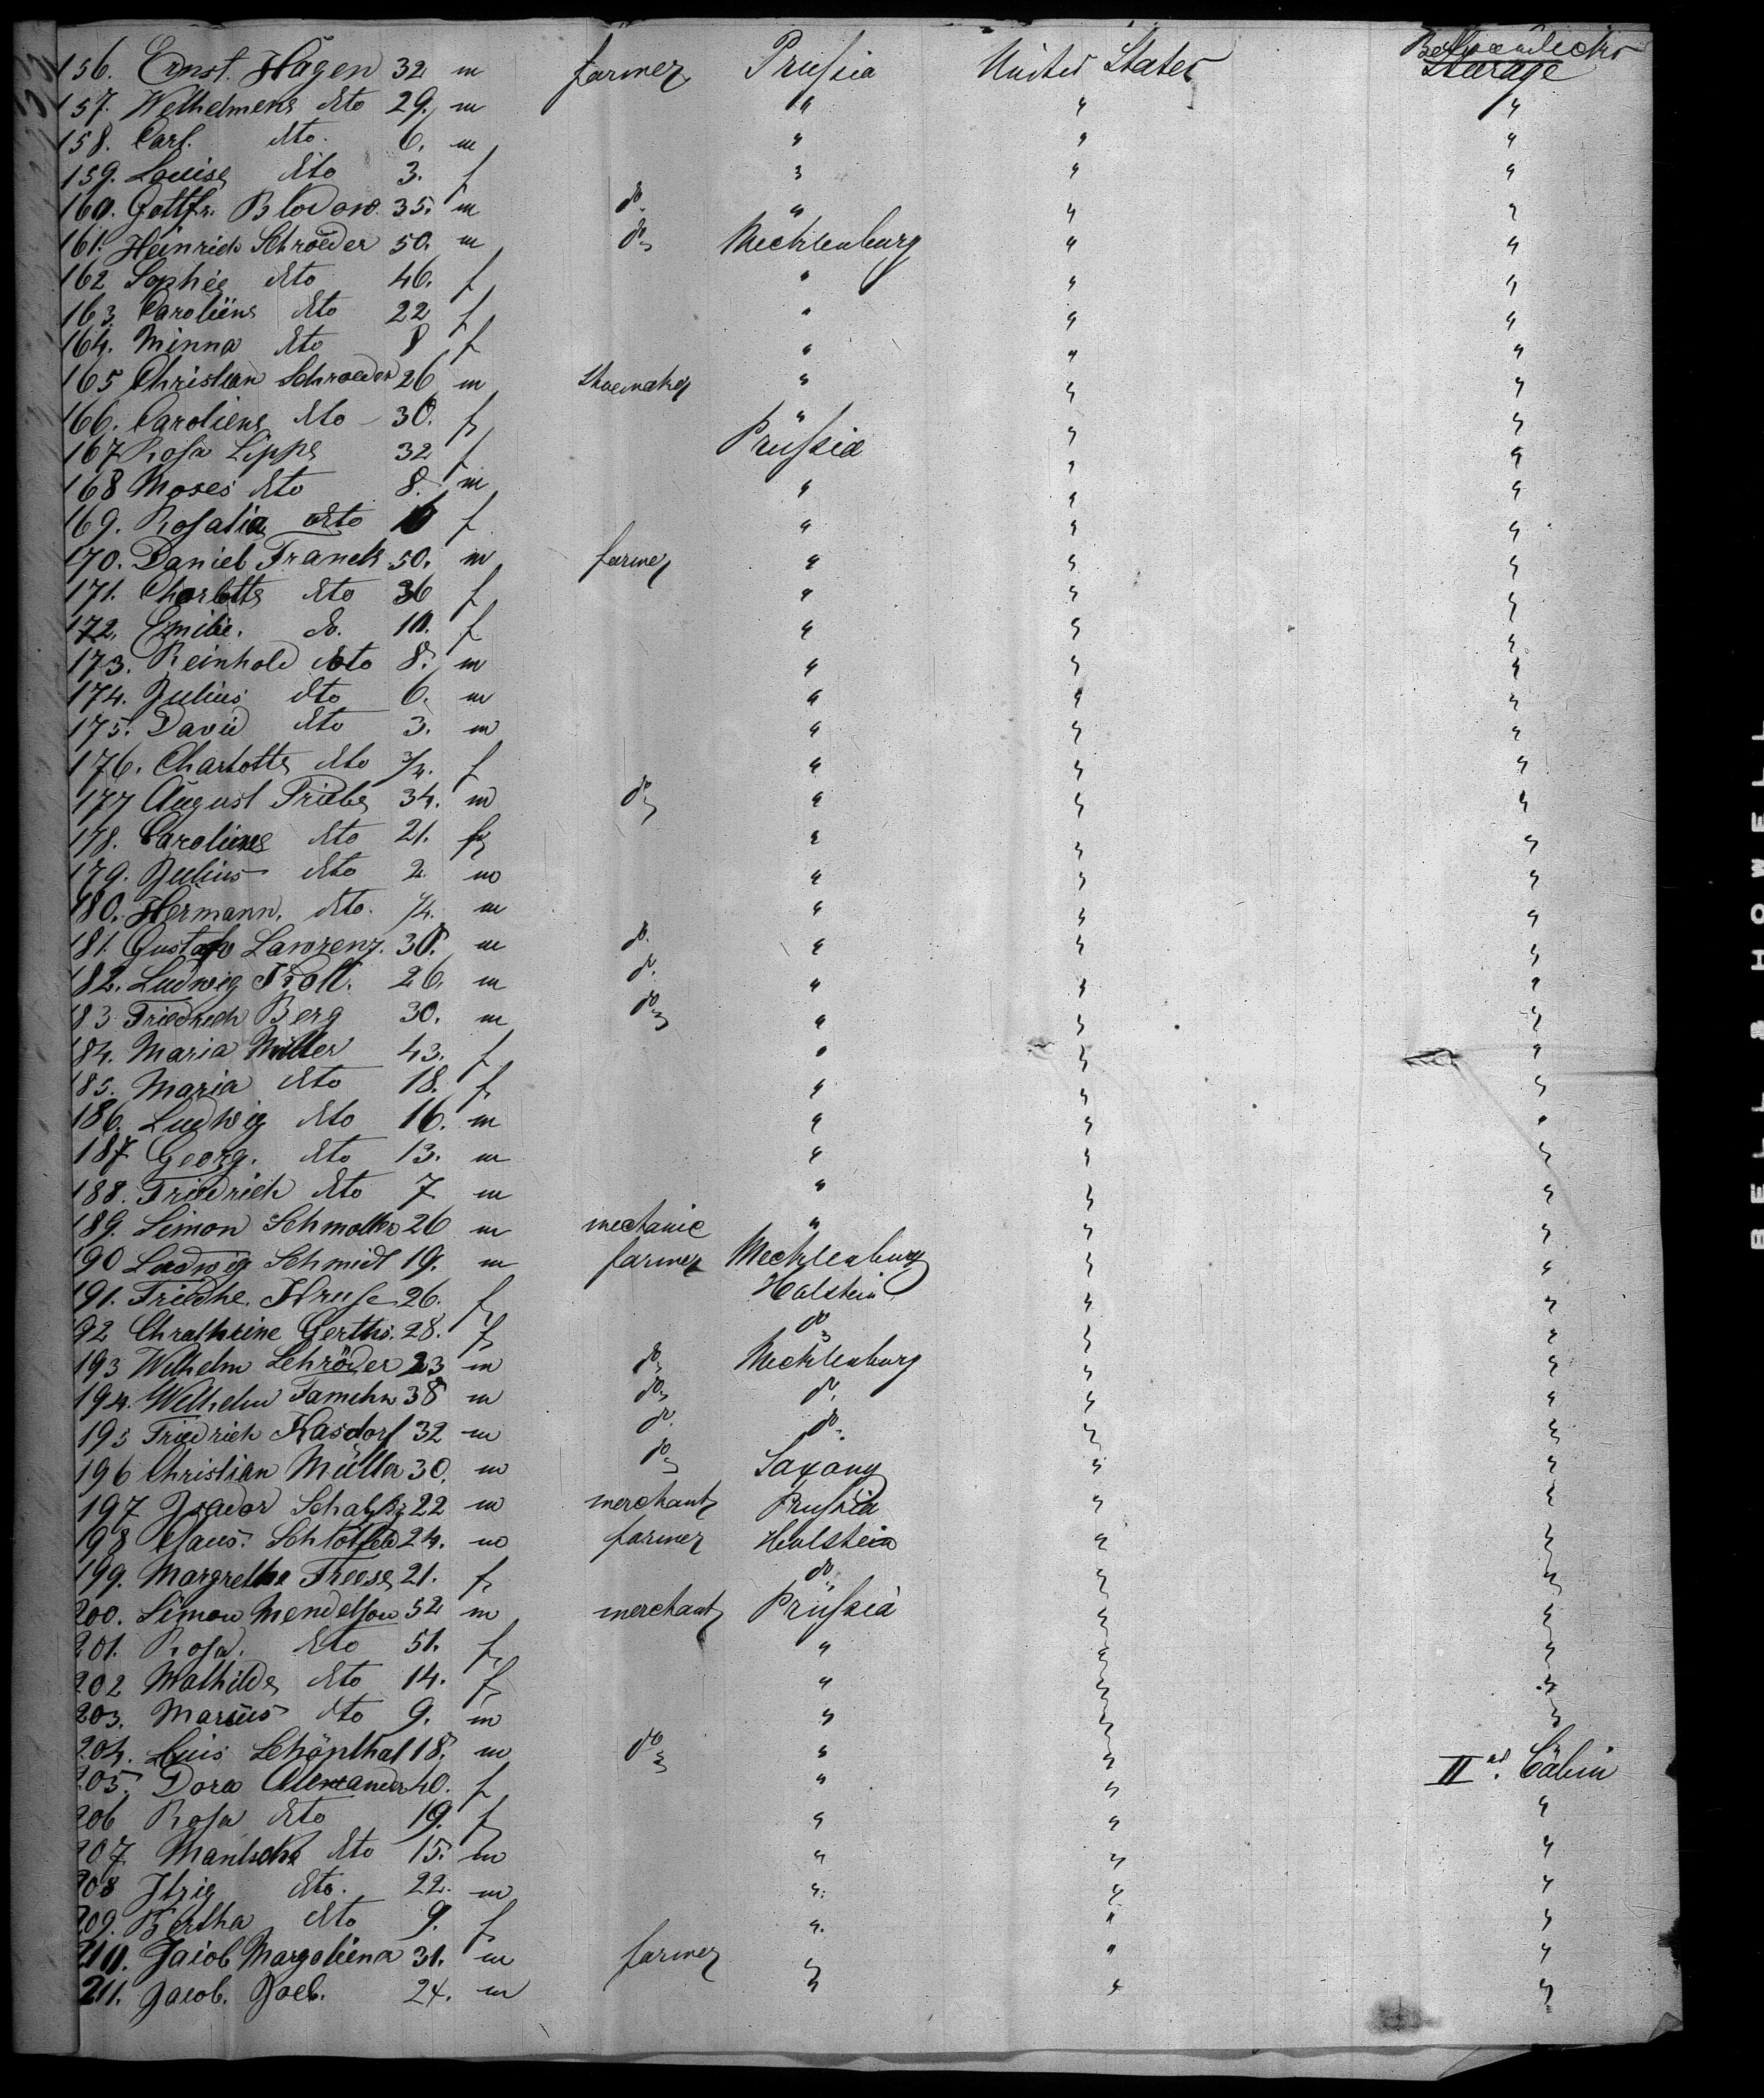 156. Ernst Hagen 32 m farmer Prussia United States Steerage
157. Wilhelmene dto 29. m " " "
158. Carl. dto. 6. m " " "
159. Louise dto 3. f " " "
160. Gottfr. Blodow 35. m do. " " "
161. Heinrich Schröder 50. m do Mecklenburg " "
162 Sophie dto 46. f " " "
163 Caroliene dto 22 f " " "
164. Minna dto 8 f " " "
165 Christian Schroeder 26 m Shoemaker " " "
166. Caroliene dto 30. f " " "
167 Rosa Lippe 32 f Prussia " "
168 Moses dto 8. m " " "
169. Rosalia dto f " " "
170. Daniel Franck 50. m farmer " " "
171. Charlotte dto 36 f " " "
172. Emilie. do. 10. f " " "
173. Reinhold dto 8. m " " "
174. Julius dto 6. m " " "
175. David dto 3. m " " "
176. Charlotte dto 3/4. f " " "
177 August Triebe 34. m do " " "
178. Caroliene dto 21. f " " "
179. Julius dto 2. m " " "
180. Hermann. dto. 1/4. m " " "
181. Gustav Lawrenz. 30. m do. " " "
182. Ludwig 26. m do. " " "
183 Friedrich Berg 30. m do " " "
184. Maria Müller 43. f " " "
185. Maria dto 18. f " " "
186. Ludwig dto 16. m " " "
187 Georg. dto 13. m " " "
188. Friedrich dto 7 m " " "
189. Simon Schmolker 26 m mechanic " " "
190 Ludwig Schmidt 19. m farmer Mecklenburg " "
191. Friedke. Kruse 26. f Holstein " "
192 Chrathrine Gerths. 28. f do " "
193 Wilhelm Schröder 23 m do Mecklenburg " "
194. Wilhelm Famehn 38 m do do. " "
195 Friedrich Kasdorf 32 m do. do. " "
196 Christian Müller 30. m do Saxony " "
197 Isador 22 m merchant Prussia " "
198 Claus. Schlotfeld 24. m farmer Holstein " "
199. Margrethe Freese 21. f do. " "
200. Simon Mendelson 52 m merchant Prussia " "
201. Rosa. dto 51. f " " "
202 Mathilde dto 14. f " " "
203. Marius dto 9. m " " "
204. Luis Schönthal 18. m do " " "
205. Dora Alexander 40. f " " IInd. Cabin
206 Rosa dto 19. f " " "
207 dto 15. m " " "
208 Itzig dto. 22. m " " "
209. Bertha dto 9. f " " "
210. Jaiob Margoliena 31. m farmer " " "
211. Jacob. Joel. 24. m " " "
BELL & HOWELL